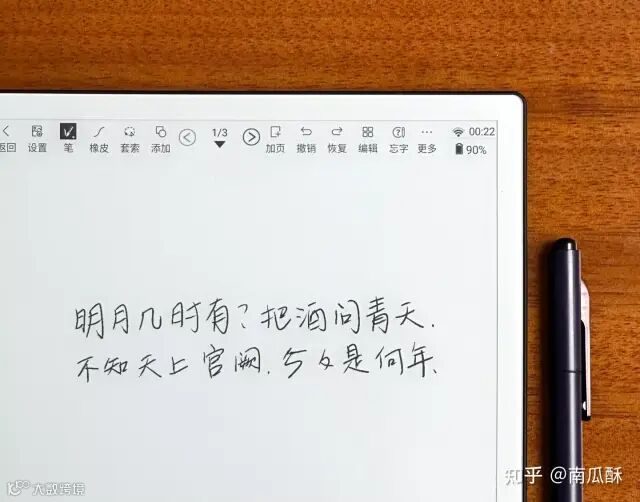 返回 设置 笔 橡皮 套索 添加 1/3 加页 撤销 恢复 编辑 忘字 更多 00:22 90%
明月几时有?把酒问青天.
不知天上宫阙.今夕是何年.
大数跨境
知乎 @南瓜酥